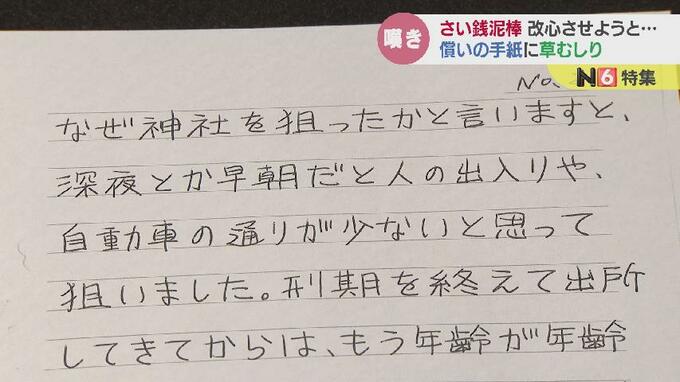 嘆き
さい銭泥棒 改心させようと…
償いの手紙に草むしり
N6 特集
No.
なぜ神社を狙ったかと言いますと、
深夜とか早朝だと人の出入りや、
自動車の通りが少ないと思って
狙いました。刑期を終えて出所
してきてからは、もう年齢が年齢